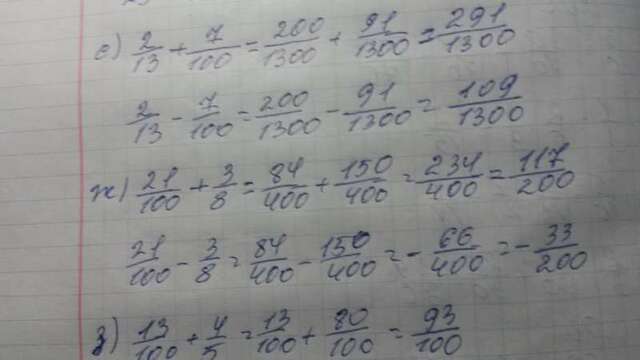 е) 2/13 + 7/100 = 200/1300 + 91/1300 = 291/1300
2/13 - 7/100 = 200/1300 - 91/1300 = 109/1300
ж) 21/100 + 3/8 = 84/400 + 150/400 = 234/400 = 117/200
21/100 - 3/8 = 84/400 - 150/400 = - 66/400 = - 33/200
з) 13/100 + 4/5 = 13/100 + 80/100 = 93/100